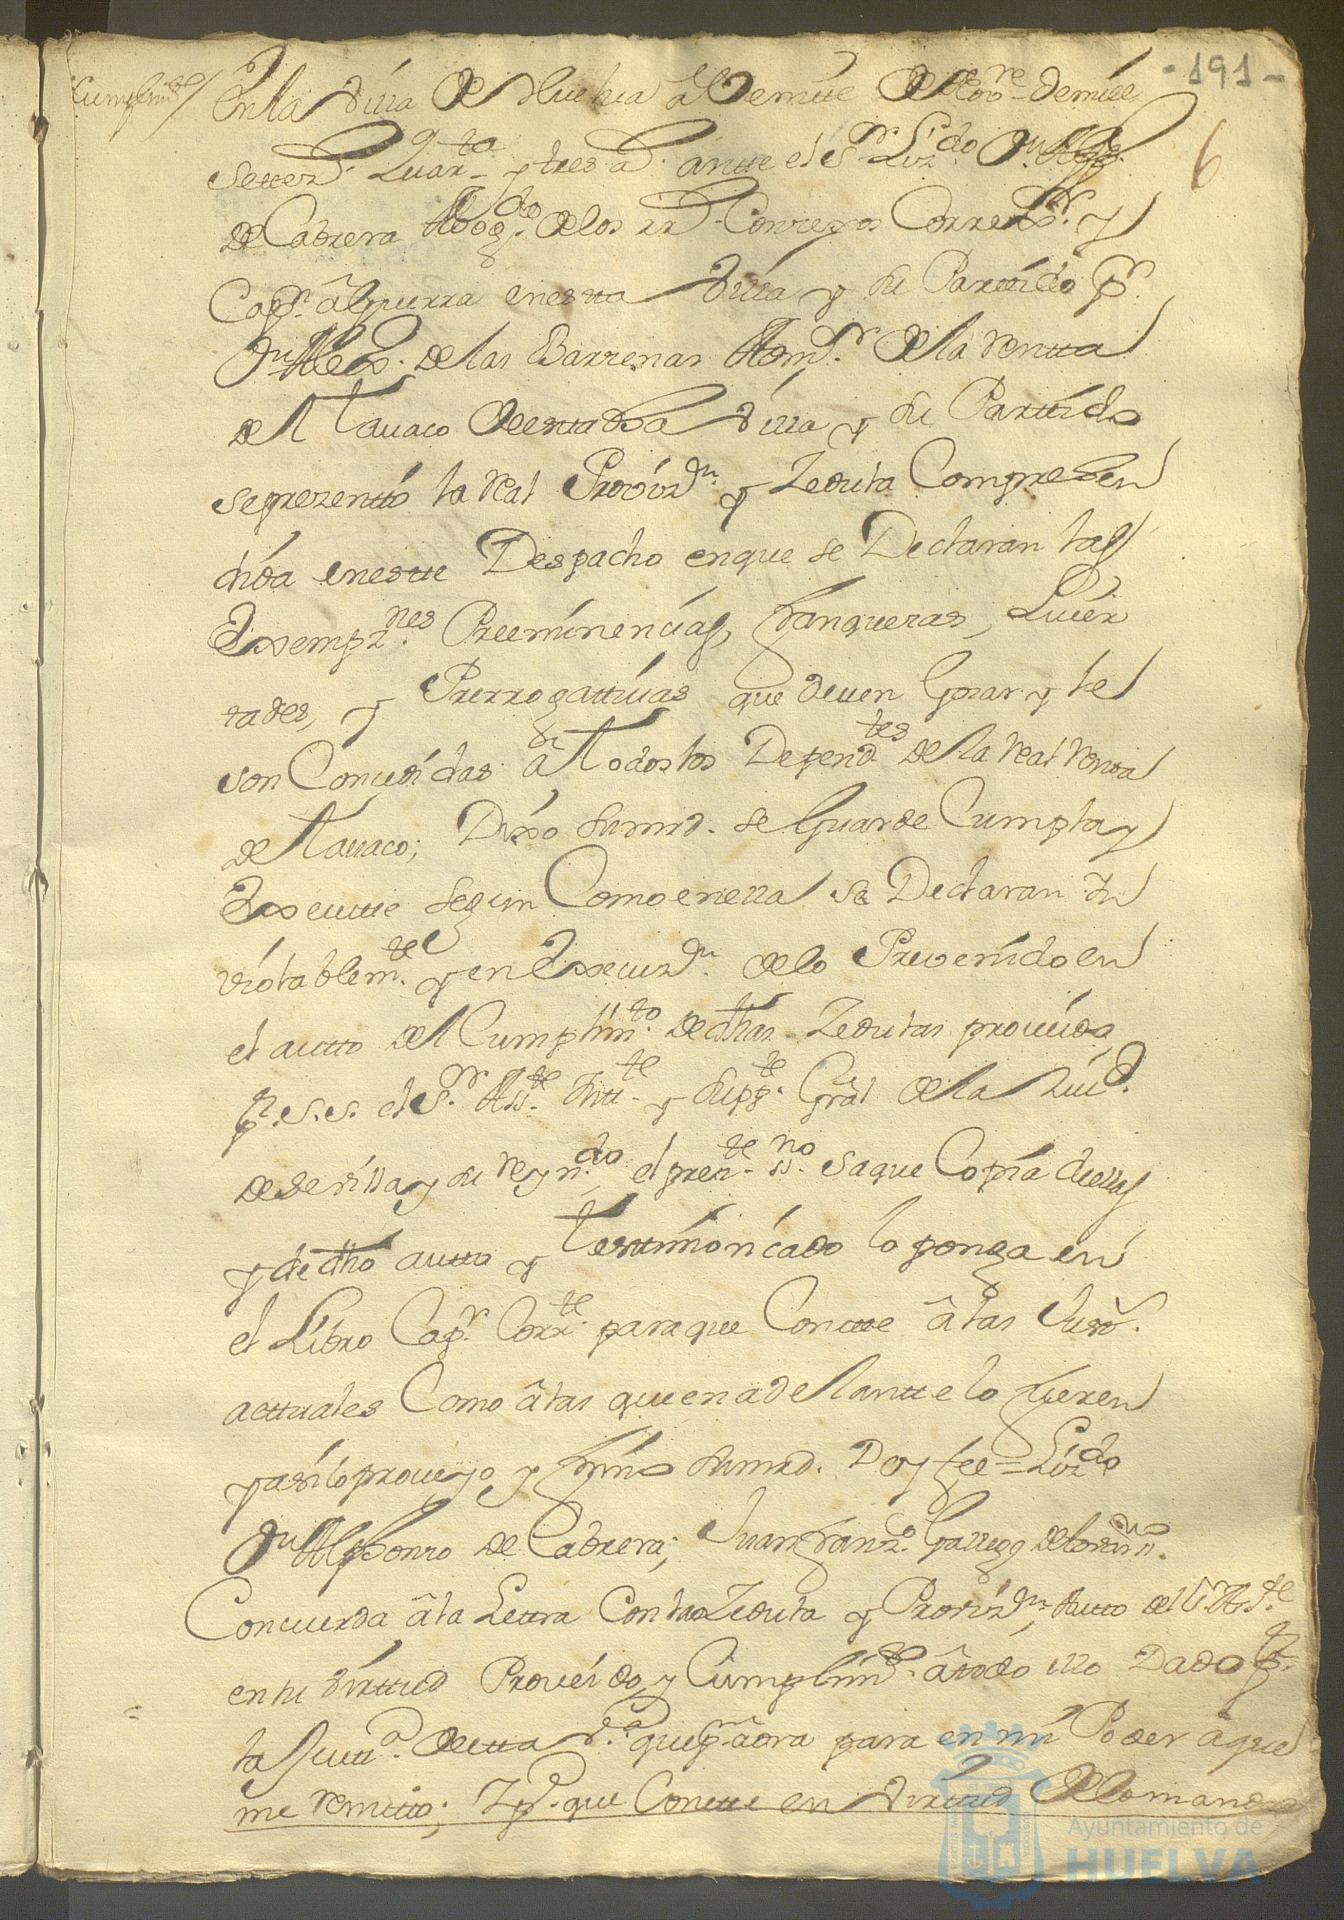 - 191 -
6
Cumplimto/
En la Villa de Huelva a Vte de Novre de mill
Settezs. Quarta y tres as. antte el Sr Lizdo Jn Alphso
de Cabrera Abogdo de los Rs. Consejos Corregor. y
Capn. â Guerra en estta Villa y su Parttido pr.
Jn Alexo de las Barrenas Admr. de la Rentta
de Tavaco de esta dha Villa y su Parttido
se presenttó la Real Provizn. y Zedula Comprehen
dida en estte Despacho en que se Declaran las
Exempznes. Preeminencias, franquezas, Liver
tades, y Prerrogattivas que deven Gozar y le
son Concedidas â Todos los Dependtes de la Real Renta
de Tavaco; Dixo su mrd. se Guarde Cumpla y
Execute segun Como en ella se Declaran in
violablemte. y en Execuzn. de lo Prevenido en
el autto del Cumplimto. de dhas Zedulas proveido
pr. S. S. el Sr. Asste. Intte. y supte. Gral de la Ziud.
de Sevilla y su Reyndo el preste. ssno. saque Copia de ellas
y de dho autto y Testtimoniado lo ponga en
el Libro Capr. Corrte. para que Constte â las Justs.
acttuales Como â las que en adelantte lo fueren
y asi lo proveyo y firmo su mrd. Doy fee = Lizdo
Jn Alphonso de Cabrera; Juan Franzo. Gallego de ssno.
Concuerda â la Letra Con la Zedula y Provizn. Autto del Sr. Asste
en su virttud Proveido, y Cumplimto. â todo ello Dado pr.
la Justta. de esta Va. que pr aora para en mi Poder â que
me remitto; Y pa. que Constte en virtud de lo mand
Ayuntamiento de
HUELVA